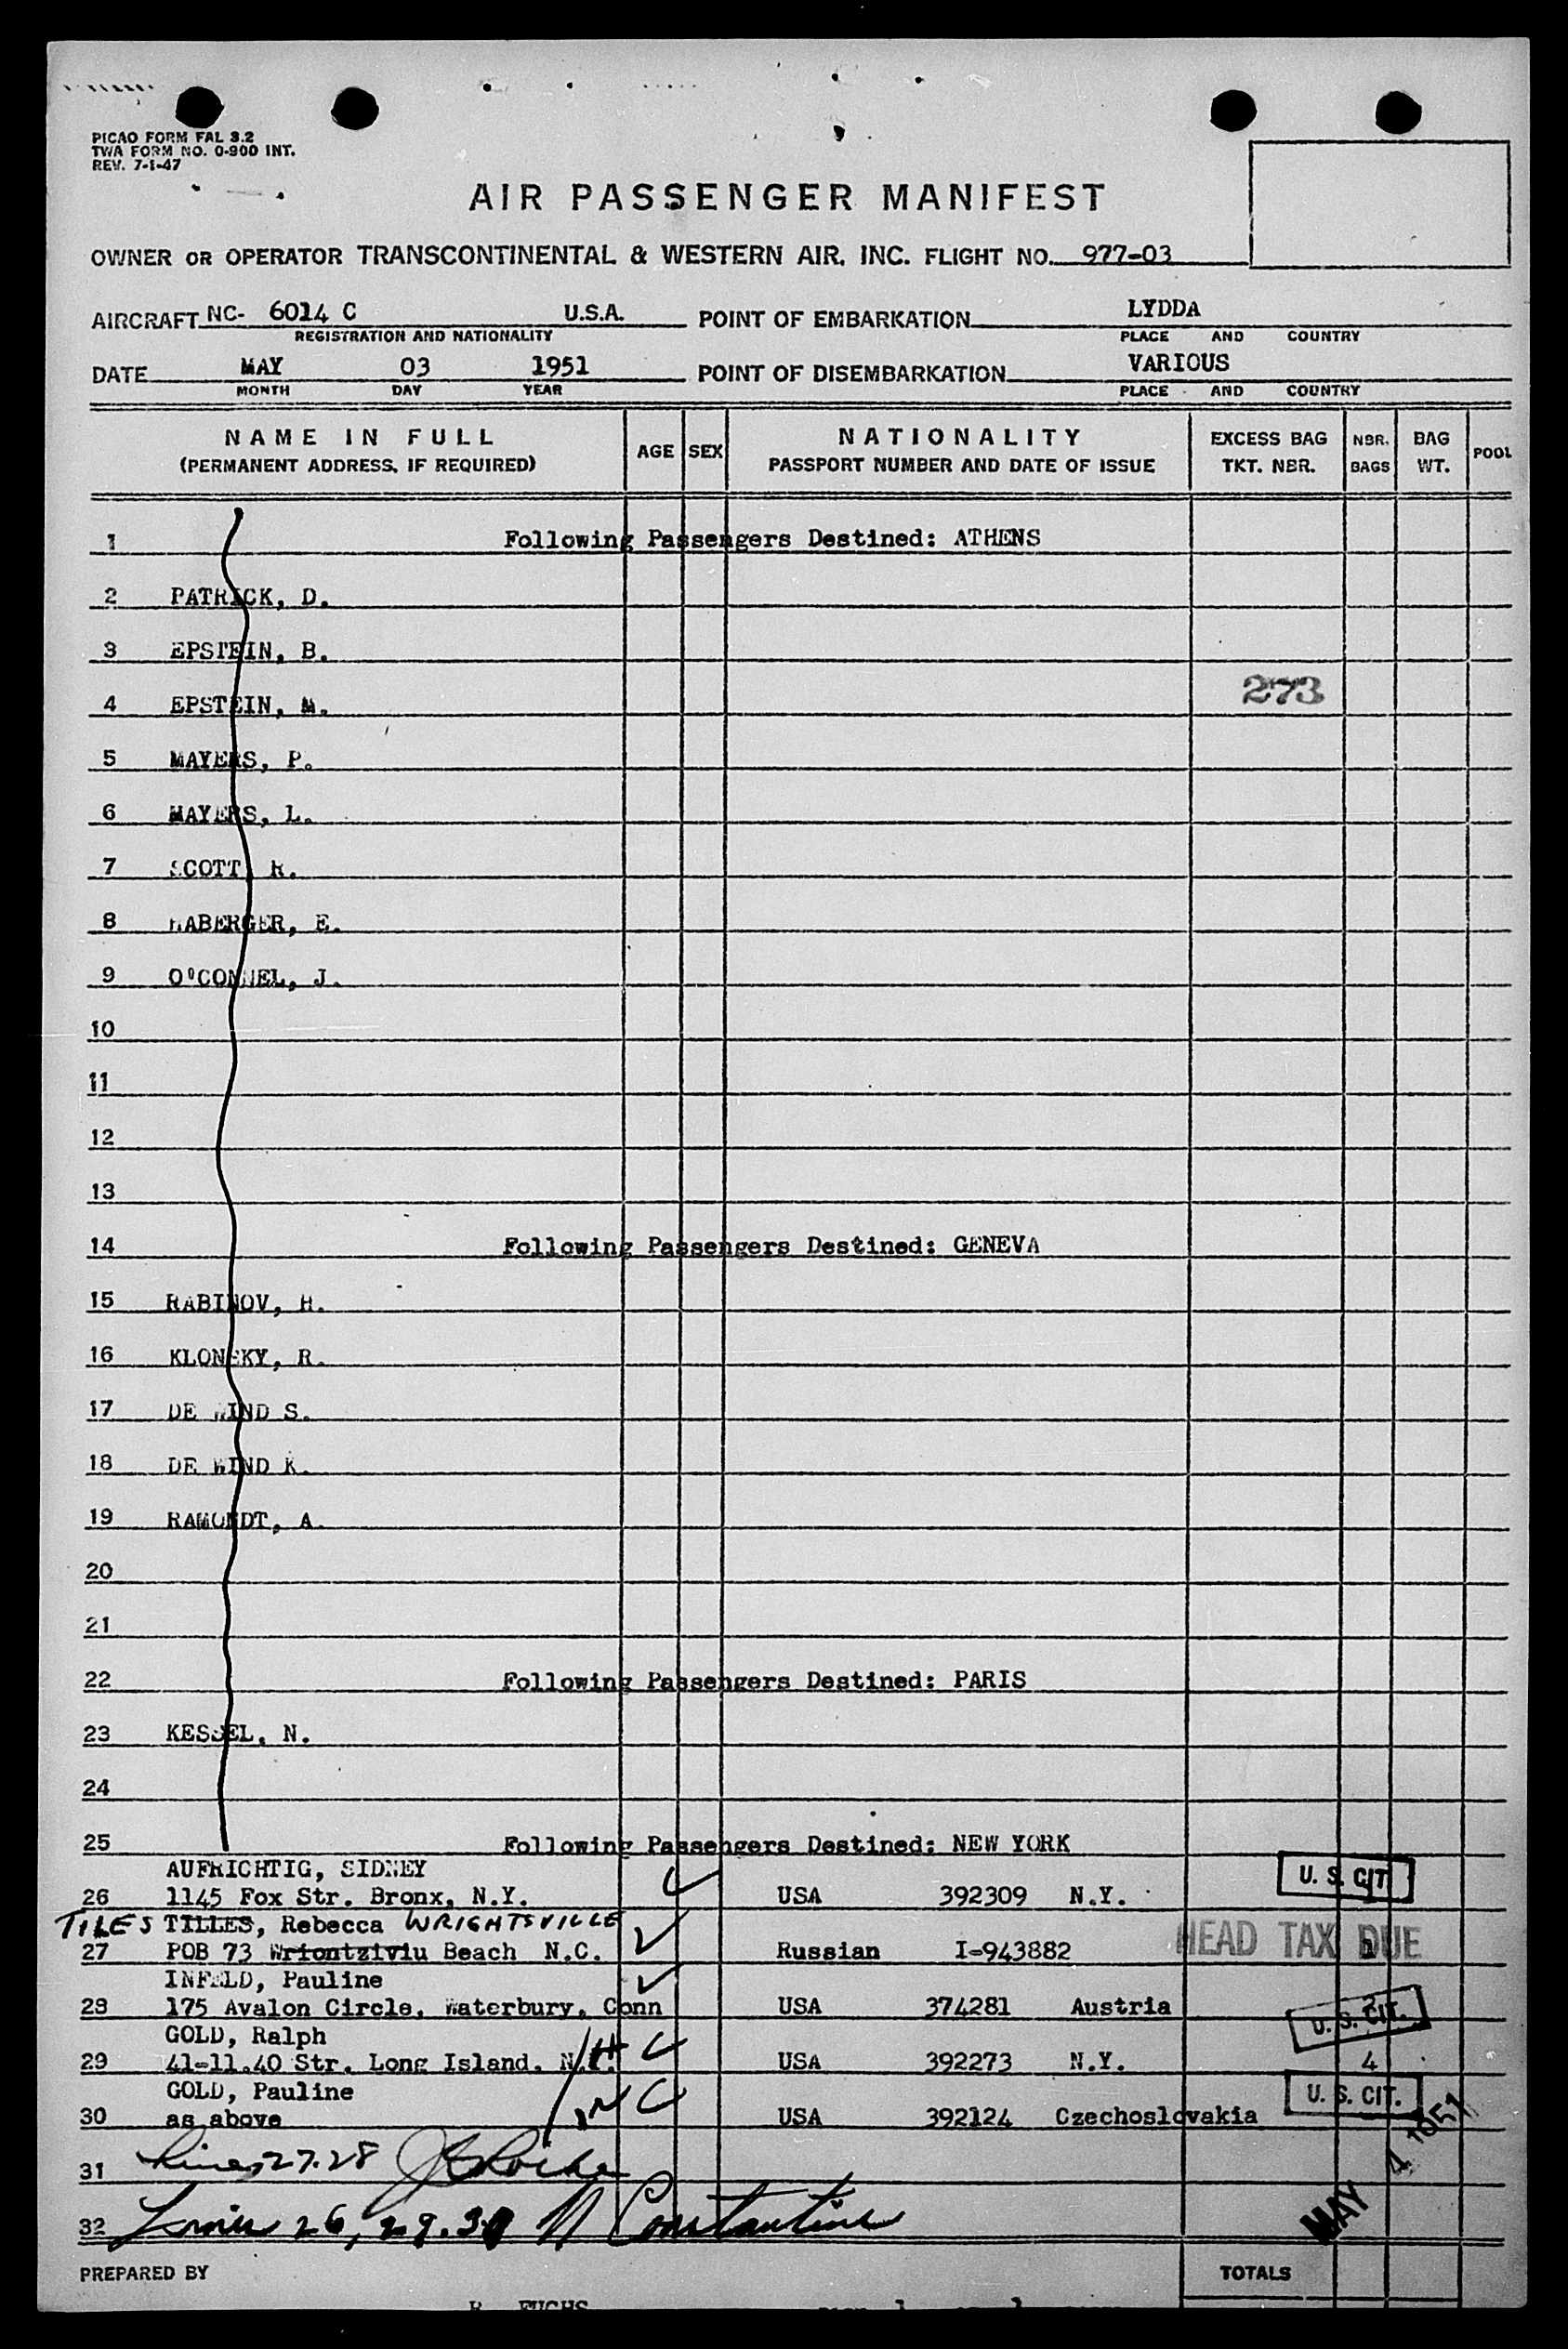 PICAO FORM FAL 3.2
TWA FORM NO. 0-900 INT.
REV. 7-1-47
AIR PASSENGER MANIFEST
OWNER OR OPERATOR TRANSCONTINENTAL & WESTERN AIR, INC. FLIGHT NO. 977-03
AIRCRAFT NC- 6014 C U.S.A. POINT OF EMBARKATION LYDDA
REGISTRATION AND NATIONALITY PLACE AND COUNTRY
DATE MAY 03 1951 POINT OF DISEMBARKATION VARIOUS
MONTH DAY YEAR PLACE AND COUNTRY
NAME IN FULL AGE SEX NATIONALITY EXCESS BAG NBR. BAG POOL
(PERMANENT ADDRESS, IF REQUIRED) PASSPORT NUMBER AND DATE OF ISSUE TKT. NBR. BAGS WT.
1 Following Passengers Destined: ATHENS
2 PATRICK, D.
3 EPSTEIN, B.
4 EPSTEIN, M. 273
5 MAYERS, P.
6 MAYERS, L.
7 SCOTT, R.
8 HABERGER, E.
9 O'CONNEL, J.
10
11
12
13
14 Following Passengers Destined: GENEVA
15 RABINOV, H.
16 KLONSKY, R.
17 DE WIND S.
18 DE WIND K.
19 RAMONDT, A.
20
21
22 Following Passengers Destined: PARIS
23 KESSEL, N.
24
25 Following Passengers Destined: NEW YORK
AUFRICHTIG, SIDNEY
26 1145 Fox Str. Bronx, N.Y. USA 392309 N.Y. U. S. CIT. 1
TILES TILLES, Rebecca WRIGHTSVILLE
27 POB 73 Wriontziviu Beach N.C. Russian I-943882 HEAD TAX DUE
INFELD, Pauline
28 175 Avalon Circle, Waterbury, Conn USA 374281 Austria 2 U. S. CIT.
GOLD, Ralph
29 41-11.40 Str. Long Island, USA 392273 N.Y. 4
GOLD, Pauline
30 as above USA 392124 Czechoslovakia U. S. CIT.
31 Lines 27.28
MAY 4 1951
32 Lines 26, 29.30 N Constantine
PREPARED BY TOTALS
FUCHS